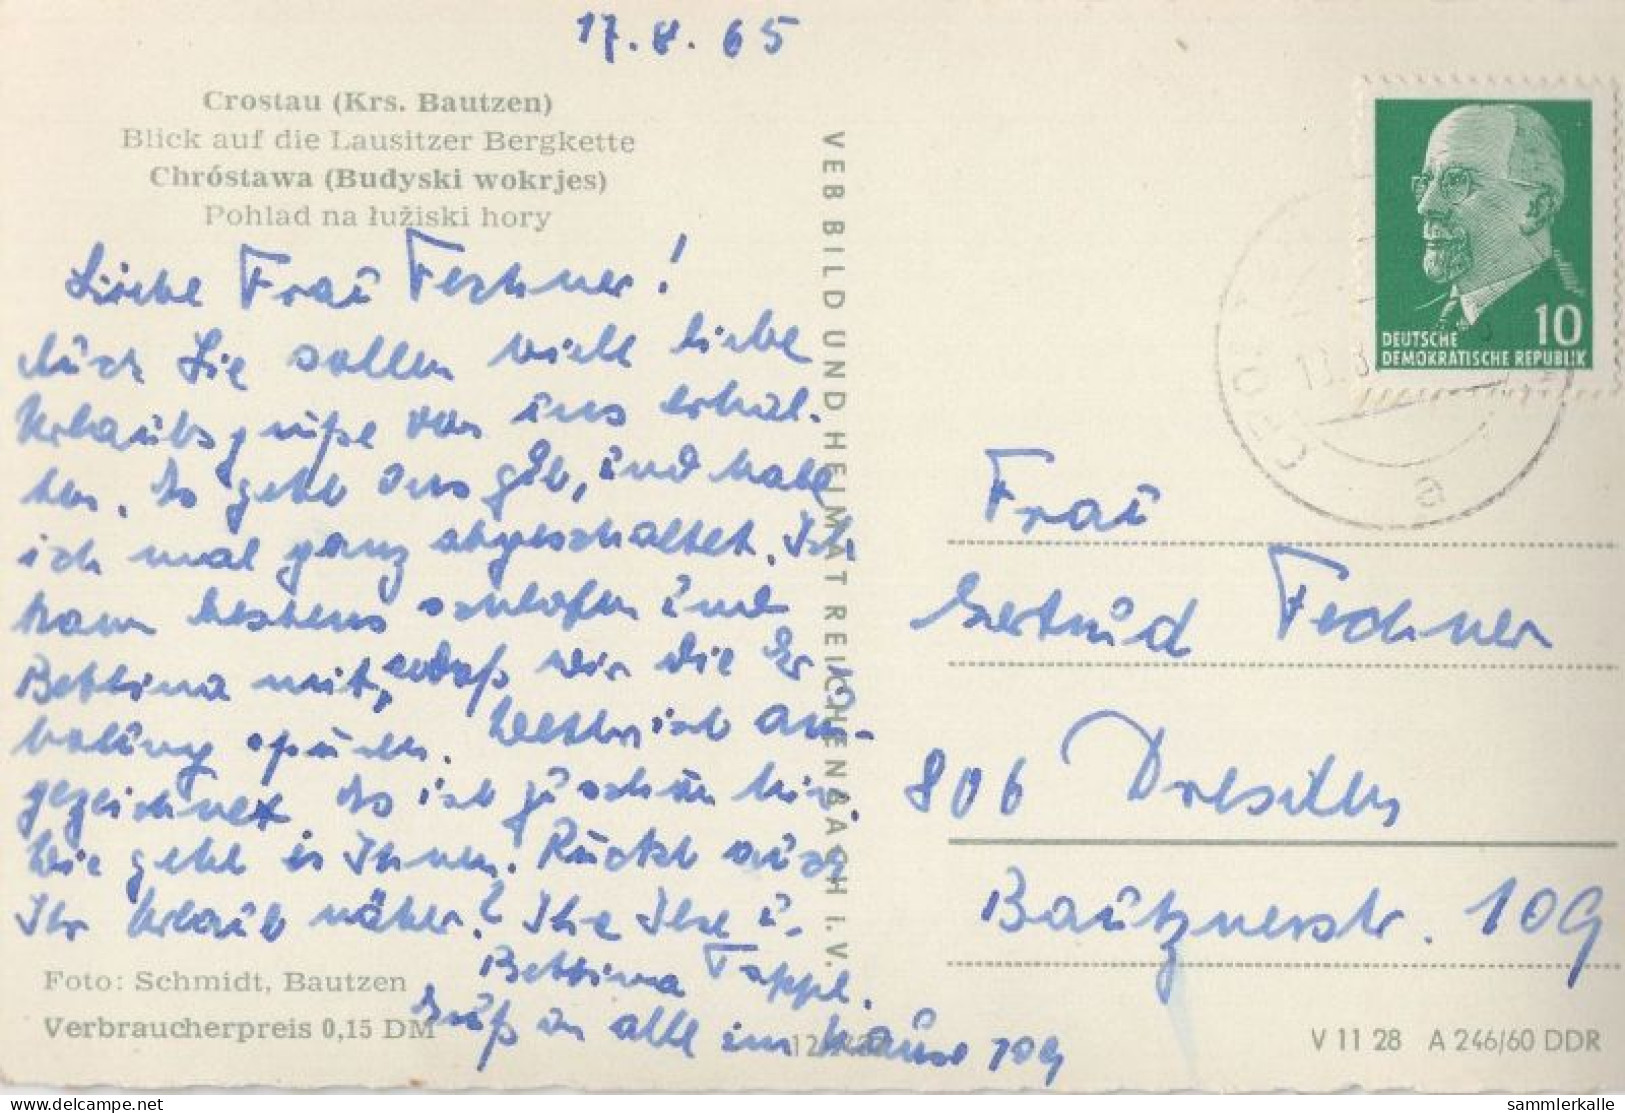 17.8.65
Crostau (Krs. Bautzen)
Blick auf die Lausitzer Bergkette
Chróstawa (Budyski wokrjes)
Pohlad na łužiski hory
Liebe Frau Fechner!
Auch Sie sollen viele liebe
Urlaubsgrüße von uns erhal-
ten. Es geht uns gut, und habe
ich mal ganz abgeschaltet. Ich
kann bestens schlafen und
Bettina mit, sodaß wir die Er-
holung spüren. Wetter ist
gezeichnet. Es ist ja schön hier.
Wie geht es Ihnen. Rückt auch
Ihr Urlaub näher? Ihre Ilse u.
Bettina Tappl.
Gruß an alle im Hause 109
Foto: Schmidt, Bautzen
Verbraucherpreis 0,15 DM
VEB BILD UND HEIMAT REICHENBACH I. V.
10
DEUTSCHE
DEMOKRATISCHE REPUBLIK
Frau
Gertrud Fechner
806 Dresden
Bautznerstr. 109
V 11 28 A 246/60 DDR
https://www.delcampe.net
sammlerkalle